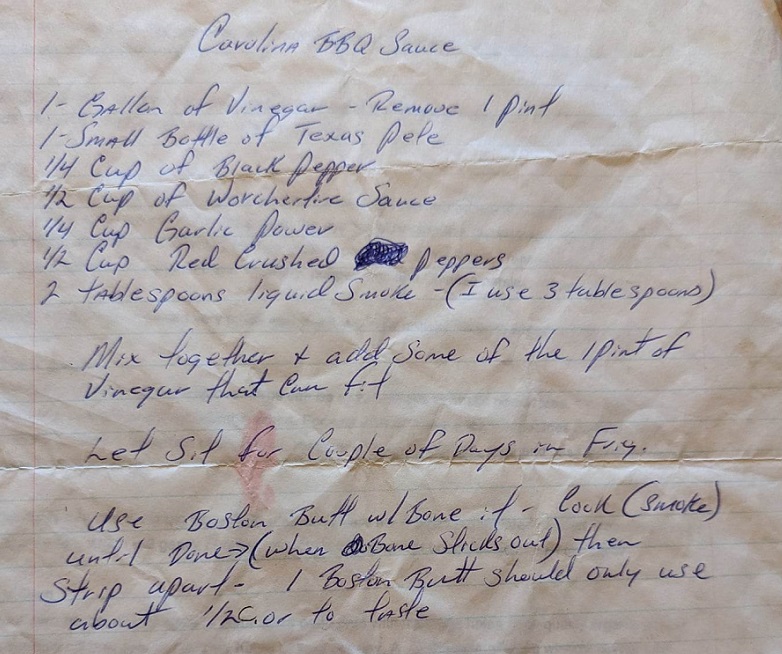 Carolina BBQ Sauce
1- Gallon of Vinegar - Remove 1 pint
1-Small Bottle of Texas Pete
1/4 Cup of Black Pepper
1/2 Cup of Worchertire Sauce
1/4 Cup Garlic Power
1/2 Cup Red Crushed peppers
2 tablespoons liquid Smoke - (I use 3 tablespoons)
Mix together & add some of the 1 pint of
Vinegar that can fit
Let Sit for Couple of Days in Frig.
Use Boston Butt w/ Bone it - Cook (Smoke)
until Done → (when Bone Sticks out) then
Strip apart - 1 Boston Butt should only use
about 1/2 C. or to taste